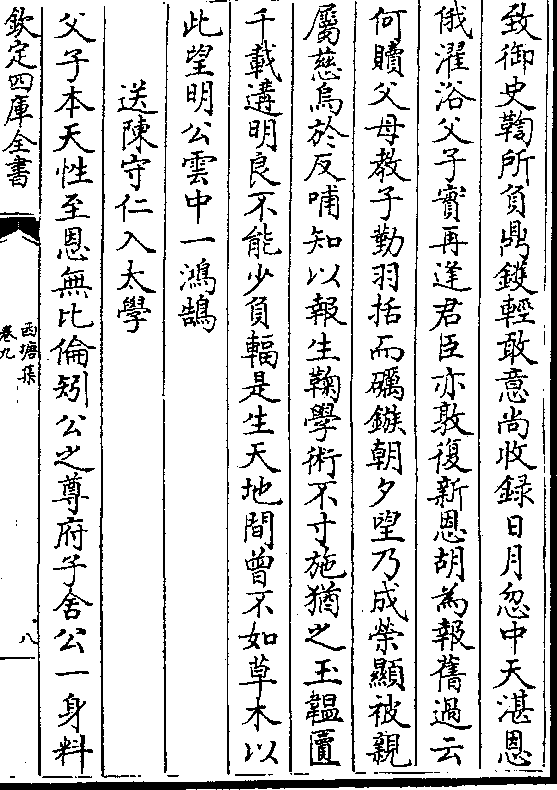 致御史鞫所負鼎鑊輕敢意尚收録日月忽中天湛恩
俄濯浴父子實再逢君臣亦敦復新恩胡為報舊過云
何贖父母教子勤羽括而礪鏃朝夕望乃成榮顯被親
屬慈烏於反哺知以報生鞠學術不寸施猶之玉韞匵
千載遘明良不能少負輻是生天地間曾不如草木以
此望明公雲中一鴻鵠
送陳守仁入太學
父子本天性至恩無比倫矧公之尊府子舍公一身料
欽定四庫全書
西塘集
卷九
八